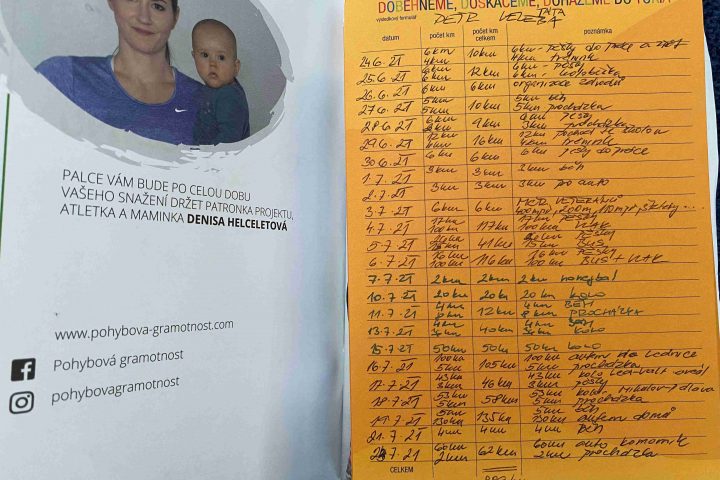 PALCE VÁM BUDE PO CELOU DOBU
VAŠEHO SNAŽENÍ DRŽET PATRONKA PROJEKTU,
ATLETKA A MAMINKA DENISA HELCELETOVÁ
www.pohybova-gramotnost.com
Pohybová gramotnost
pohybovagramotnost
DOBĚHNEME, DOSKÁČEME,
výsledkový formulář PETR VELEBA TÁTA
datum počet km počet km celkem poznámka
24.6.21 6km 10km 6km - pěšky do práce a zpět
4km 4km trénink
25.6.21 6km 12km 6km - pěšky
6km 6km - koloběžka
26.6.21 6km 6km organizace závodů
27.6.21 5km 10km 5km běh
5km 5km procházka
28.6.21 6km 9km 6km pěšky
3km 3km procházka
29.6.21 12km 16km 12km pochod
4km 4km trénink
30.6.21 6km 6km 6km pěšky do práce
1.7.21 3km 3km 3km běh
2.7.21 3km 3km 3km pro auto
3.7.21 6km 6km MČR VETERÁNŮ
4.7.21 17km 117km 17km PĚŠKY
100km 100km VLAK
5.7.21 41km PĚŠKY
15km BUS
6.7.21 16km 116km 16km PĚŠKY
100km 100km BUS + VLAK
7.7.21 2km 2km 2km nohejbal
10.7.21 20km 20km 20km kolo
11.7.21 4km 12km 4km BĚH
8km 8km PROCHÁZKA
13.7.21 4km 40km 4km BĚH
36km 36km KOLO
15.7.21 50km 50km 50km KOLO
16.7.21 100km 105km 100km autem do Lednice
5km 5km procházka
17.7.21 43km 46km 43km kolo Led-Valt areál
3km 3km pěšky
18.7.21 53km 58km 53km kolo Mikulov - Pálava
5km 5km procházka
19.7.21 5km 135km 5km běh
130km 130km autem domů
21.7.21 4km 4km 4km běh
60km 62km 60km auto komorník
2km 2km procházka
CELKEM